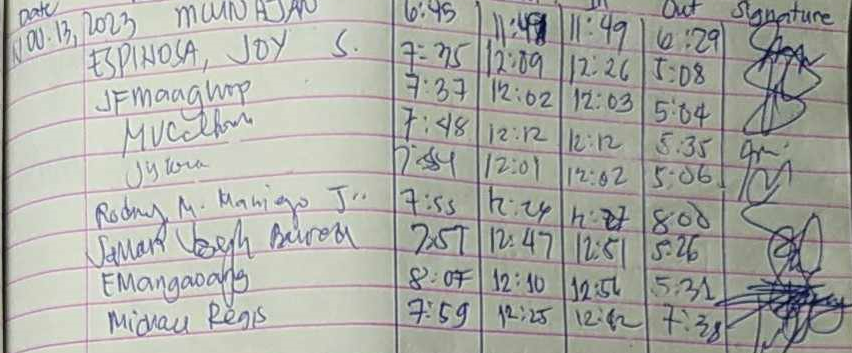 Date Out Signature
Nov. 13, 2023 MWNAJAN 6:45 11:49 11:49 6:29
ESPINOSA, JOY S. 7:35 12:09 12:26 5:08
JFmaaghop 7:37 12:02 12:03 5:04
7:48 12:12 12:12 5:35
12:01 12:02 5:06
Rodny M. Maniego Jr. 7:55 12:24 12:27 8:00
Joseph 7:57 12:47 12:51 5:26
EMangaoang 8:07 12:10 12:56 5:31
Michael Regis 7:59 12:25 12:42 7:38